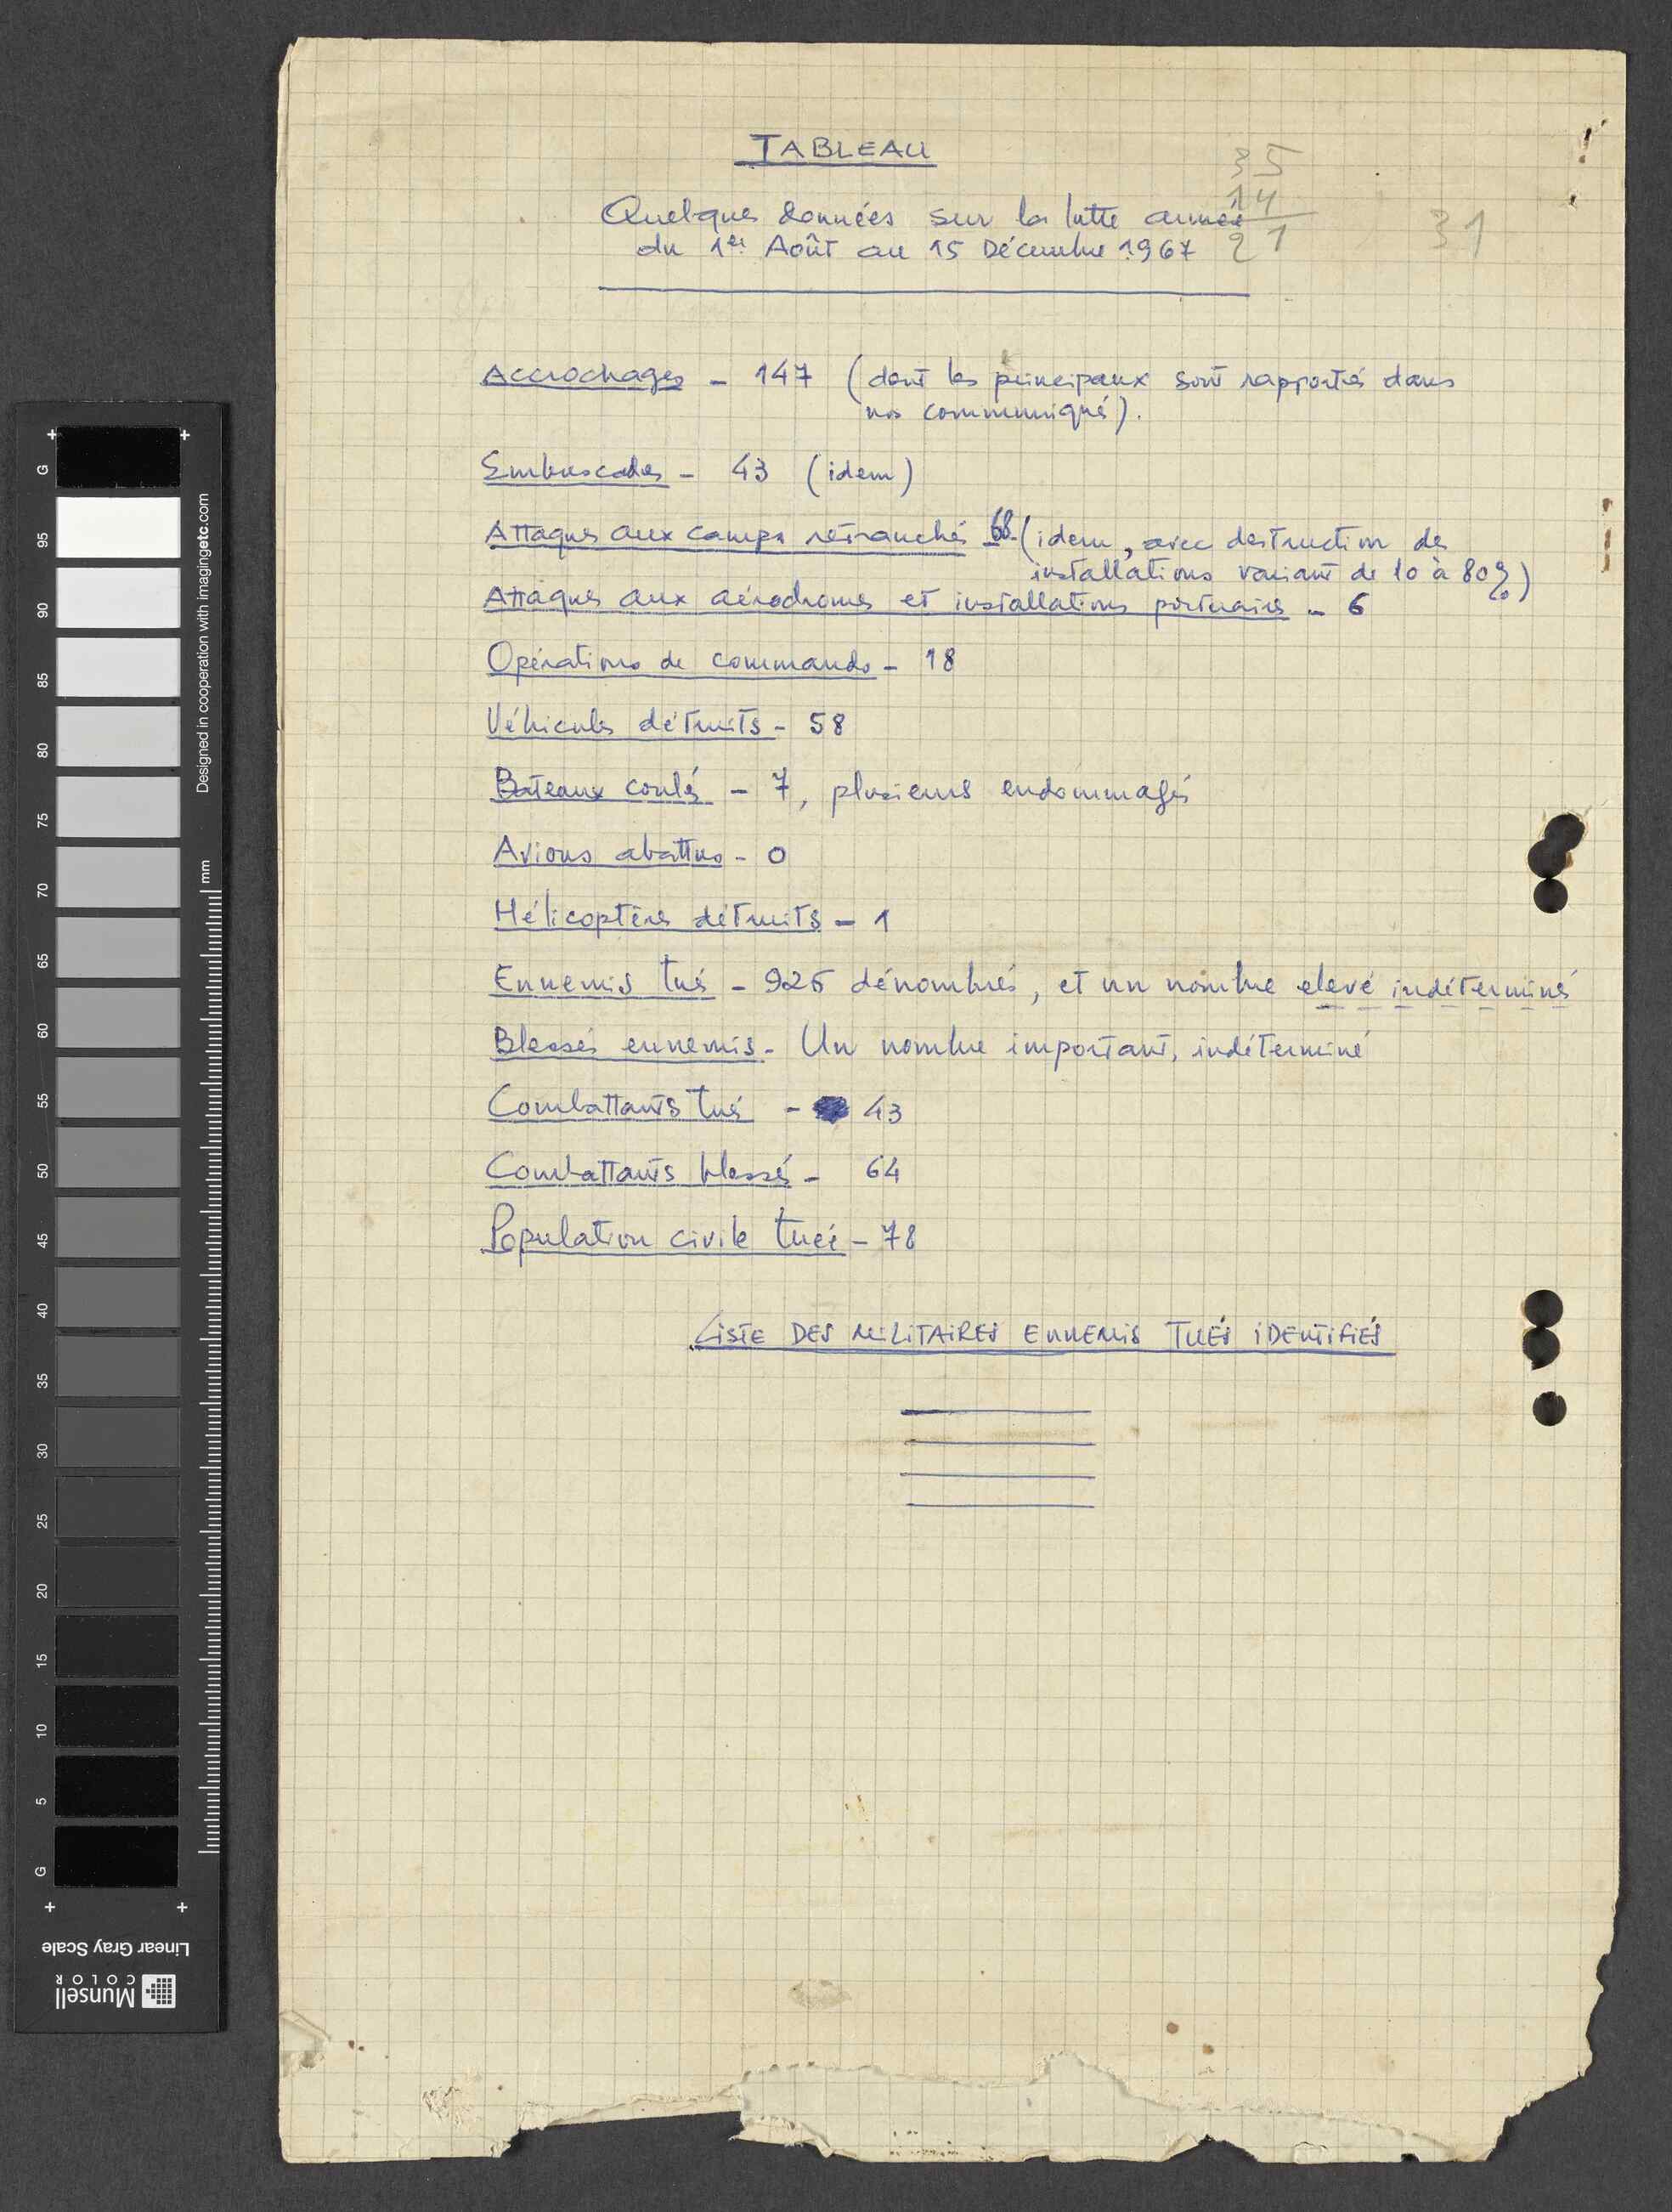 TABLEAU
35
14
21
31
Quelques données sur la lutte armée
du 1er Août au 15 Décembre 1967
Accrochages - 147 (dont les principaux sont rapportés dans
nos communiqués).
Embuscades - 43 (idem)
Attaques aux camps retranchés - 68 (idem, avec destruction des
installations variant de 10 à 80%)
Attaques aux aérodromes et installations portuaires - 6
Opérations de commandos - 18
Véhicules détruits - 58
Bateaux coulés - 7, plusieurs endommagés
Avions abattus - 0
Hélicoptères détruits - 1
Ennemis tués - 926 dénombrés, et un nombre elevé indéterminés
Blessés ennemis - Un nombre important, indéterminé
Combattants tués - 43
Combattants blessés - 64
Population civile tuée - 78
LISTE DES MILITAIRES ENNEMIS TUÉS IDENTIFIÉS
G
95
90
85
80
75
70
65
60
55
50
45
40
35
30
25
20
15
10
5
G
mm
Designed in cooperation with imagingetc.com
Linear Gray Scale
Munsell
COLOR